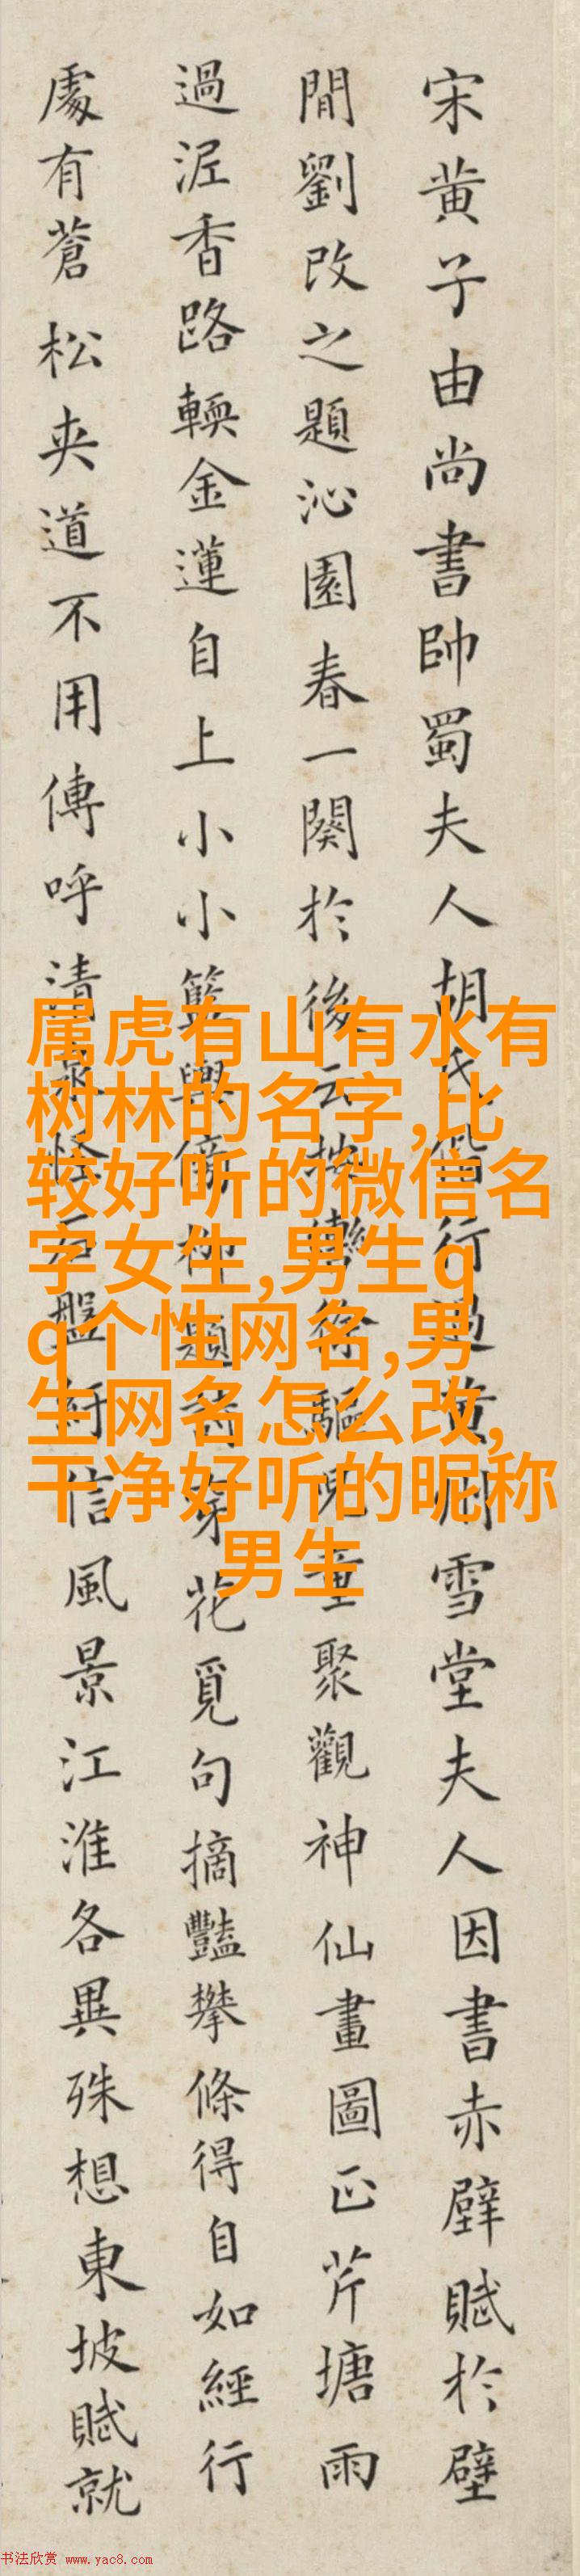 宋黄子由尚書帥蜀夫人胡氏偕行過黄州雪堂夫人因書赤壁賦於壁
間劉改之題沁園春一闋於後云按轡徐驅兒童聚觀神仙畫圖正芹塘雨
過泥香路輭金蓮自上小小籃輿傍柳題詩穿花覓句摘豔攀條得自如經行
處有蒼松夾道不用傳呼清泉怪石盤紆信風景江淮各異殊想東坡賦就
属虎有山有水有
树林的名字,比
较好听的微信名
字女生,男生q
q个性网名,男
生网名怎么改,
干净好听的昵称
男生
书法欣赏 www.yac8.com